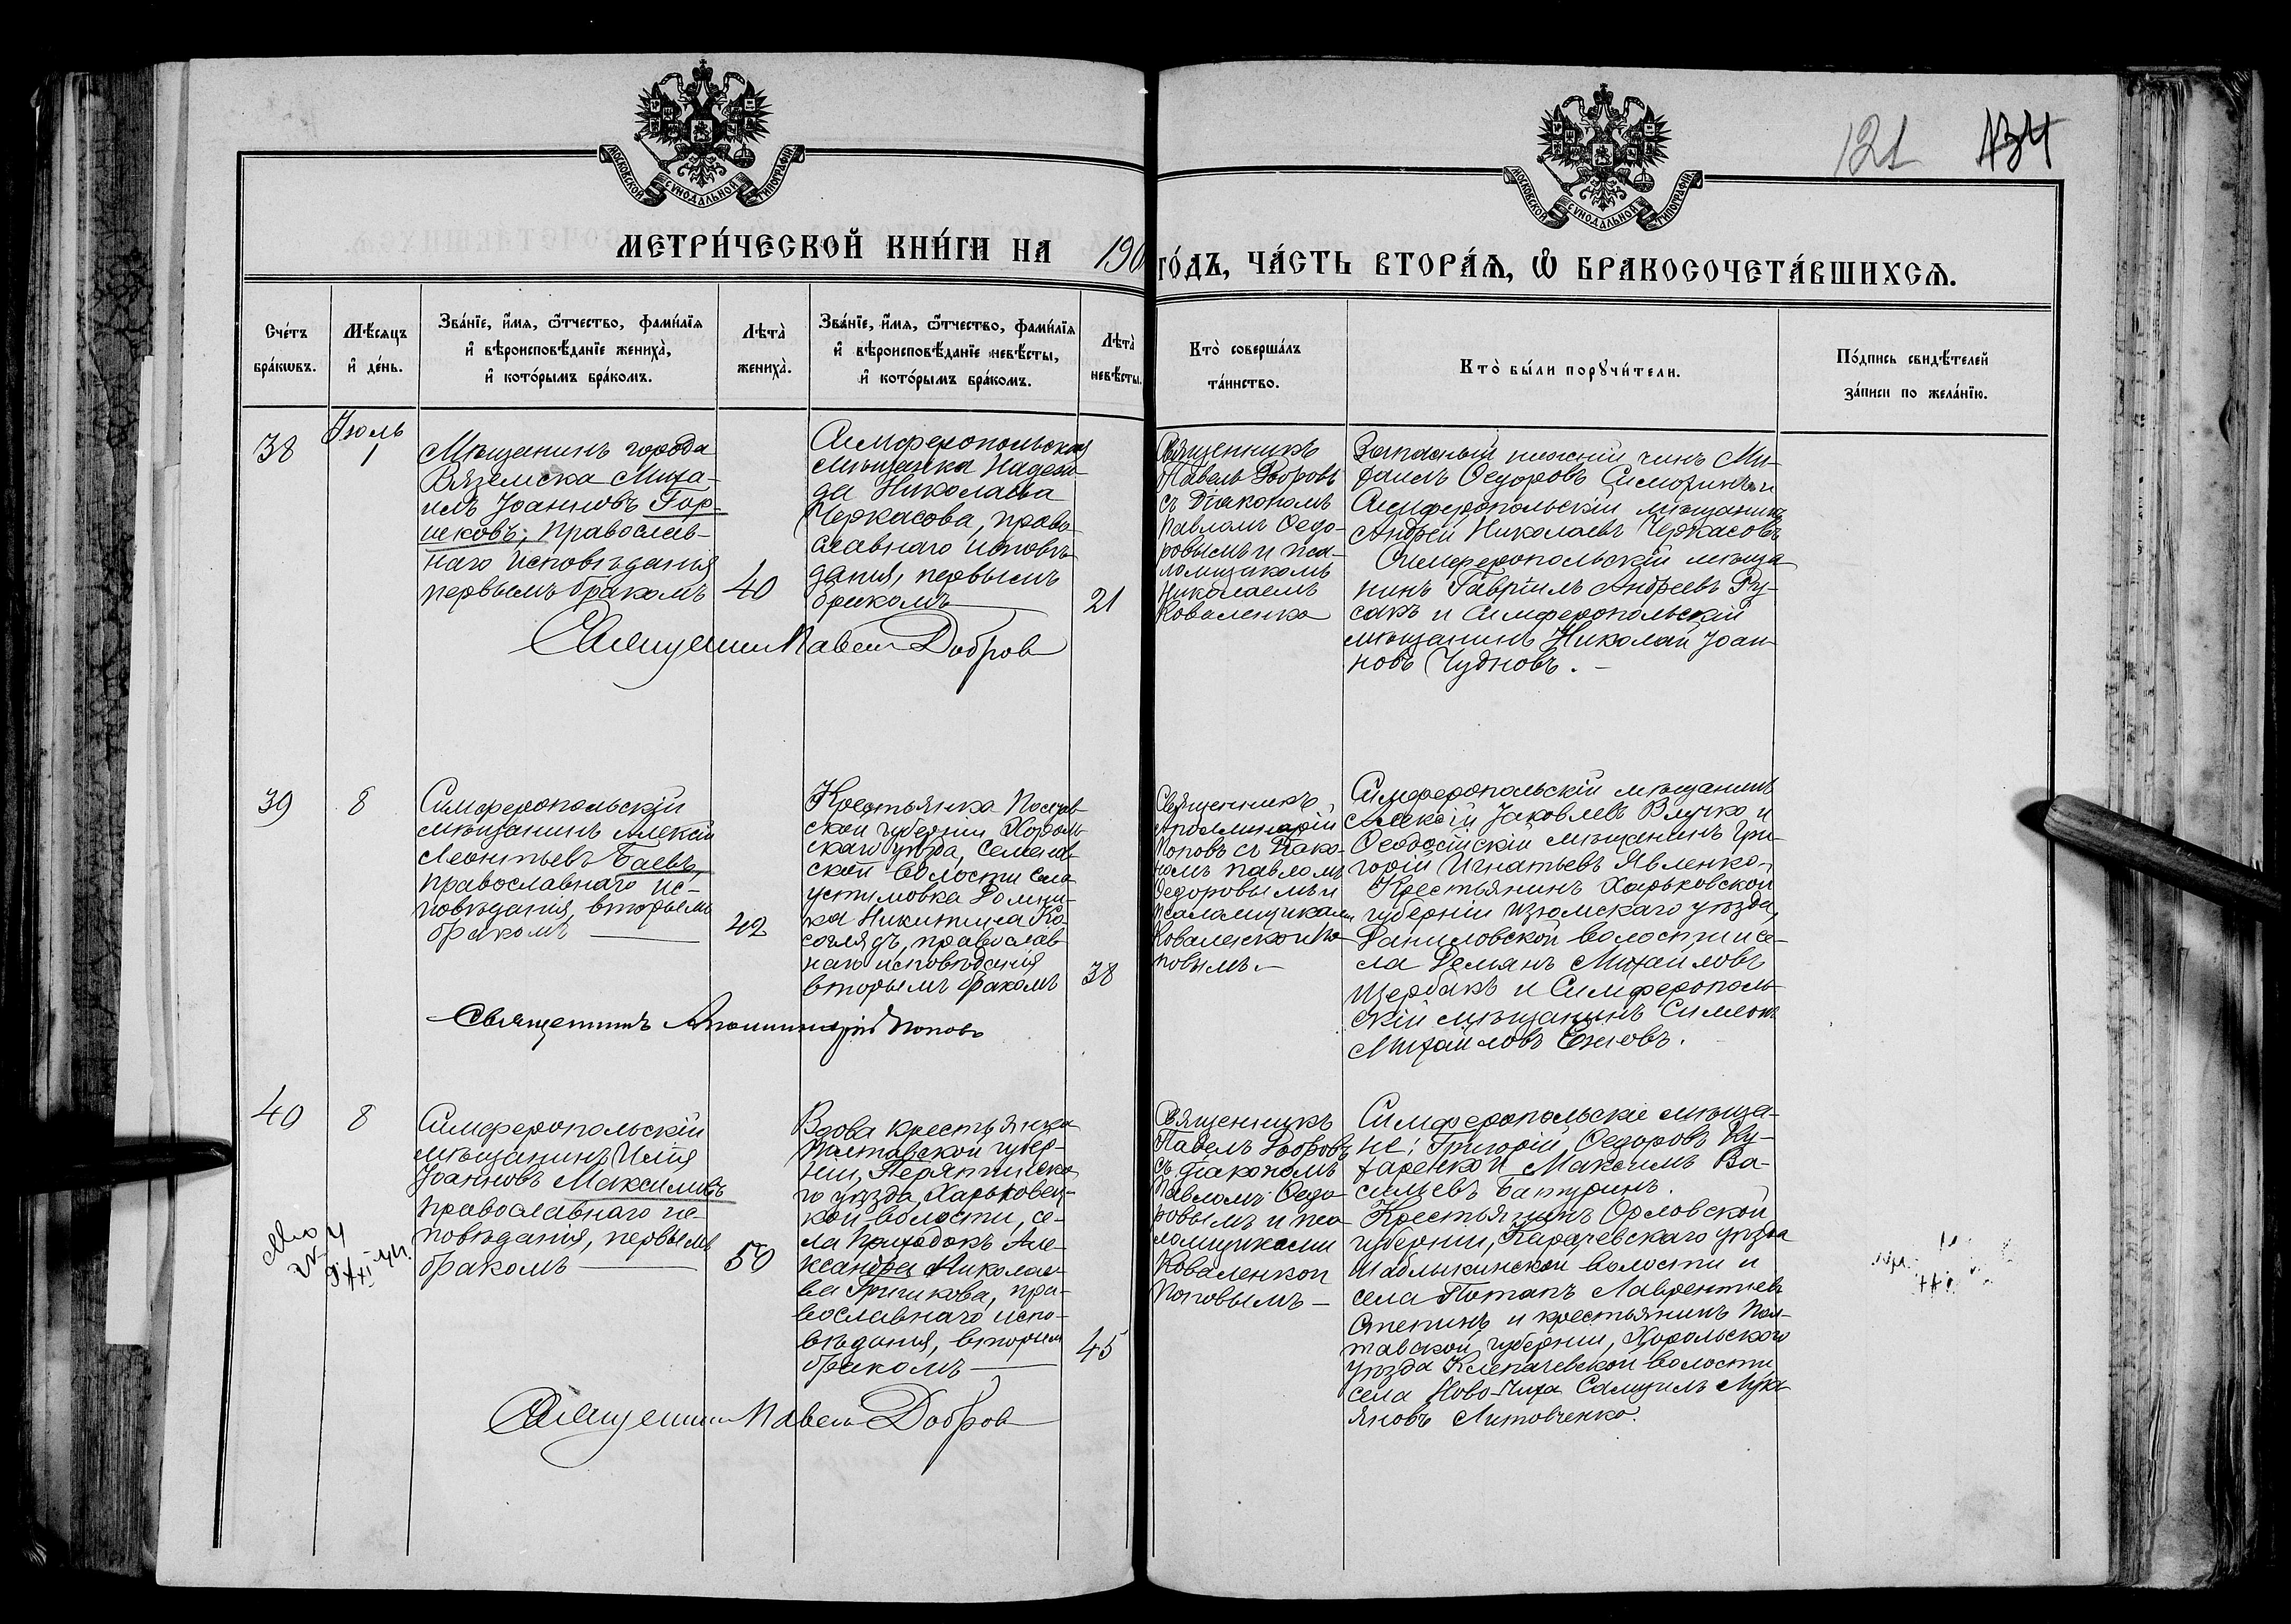 МОСКОВСКОЙ СѴНОДАЛЬНОЙ ТИПОГРАФІИ
МОСКОВСКОЙ СѴНОДАЛЬНОЙ ТИПОГРАФІИ
121 134
МЕТРИ́ЧЕСКОЙ КНИ́ГИ НА 190
ГО́ДЪ, ЧА́СТЬ ВТОРА́Ѧ, Ѽ БРАКОСОЧЕТА́ВШИХСѦ.
Сче́тъ
бра́кѡвъ.
Мѣ́сяцъ
и҆ де́нь.
Зва́нїе, и҆́мѧ, ѻ҆́тчество, фами́лїѧ
и҆ вѣроисповѣ́данїе жениха̀,
и҆ кото́рымъ бра́комъ.
Лѣта̀
жениха̀.
Зва́нїе, и҆́мѧ, ѻ҆́тчество, фами́лїѧ
и҆ вѣроисповѣ́данїе невѣ́сты,
и҆ кото́рымъ бра́комъ.
Лѣта̀
невѣ́сты.
Кто̀ соверша́лъ
та́инство.
Кто̀ бы́ли порꙋчи́тели.
По́дпись свидѣ́телей
за́писи по жела́нїю.
38
Іюль
1
Мѣщанинъ города
Вяземска Миха-
илъ Іоанновъ Гор-
шковъ, православ-
наго исповѣданія
первымъ бракомъ
40
Симферопольская
мѣщанка Надеж-
да Николаева
Черкасова, право-
славнаго исповѣ-
данія, первымъ
бракомъ
21
Священникъ
Павелъ Добровъ
съ діакономъ
Павломъ Ѳедо-
ровымъ и пса-
ломщикомъ
Николаемъ
Коваленко
Запасный нижній чинъ Ми-
хаилъ Ѳедоровъ и
Симферопольскій мѣщанинъ
Андрей Николаевъ Черкасовъ
Симферопольскій мѣща-
нинъ Гавріилъ Андреевъ Ру-
сакъ и Симферопольскій
мѣщанинъ Николай Іоан-
новъ Чудновъ. –
Священник Павел Добров
39
8
Симферопольскій
мѣщанинъ Алексѣй
Леонтьевъ Баевъ,
православнаго ис-
повѣданія, вторымъ
бракомъ
42
Крестьянка Полтав-
ской губерніи Хороль-
скаго уѣзда, Семенов-
ской волости села
Устимовка Домни-
ка Никитина Ко-
соглядъ, православ-
наго исповѣданія
вторымъ бракомъ
38
Священникъ
Аполлинарій
Поповъ съ діако-
номъ Павломъ
Ѳедоровымъ и
псаломщиками
Коваленко и По-
повымъ. –
Симферопольскій мѣщанинъ
Алексѣй Яковлевъ Влучко и
Ѳеодосійскій мѣщанинъ Гри-
горій Игнатьевъ Явленко,
Крестьянинъ Харьковской
губерніи Изюмскаго уѣзда,
Даниловской волости и се-
ла Демянъ Михайловъ
Щербакъ и Симферополь-
скій мѣщанинъ Симеонъ
Михайловъ Ежовъ.
Священникъ Аполлинарій Поповъ
40
8
Симферопольскій
мѣщанинъ Илія
Іоанновъ Максимовъ
православнаго ис-
повѣданія, первымъ
бракомъ
50
Вдова крестьянка
Полтавской губер-
ніи, Пирятинска-
го уѣзда, Харьковец-
кой волости, се-
ла Приходокъ Але-
ксандра Николае-
ва Гришкова, пра-
вославнаго испо-
вѣданія, вторымъ
бракомъ
45
Священникъ
Павелъ Добровъ
съ діакономъ
Павломъ Ѳедо-
ровымъ и пса-
ломщиками
Коваленко и
Поповымъ –
Симферопольскіе мѣща-
не: Григорій Ѳедоровъ Ку-
харенко и Максимъ Ва-
сильевъ Батуринъ.
Крестьянинъ Орловской
губерніи, Карачевскаго уѣзда
Шаблыкинской волости и
села Потапъ Лаврентьевъ
Степинъ и крестьянинъ Пол-
тавской губерніи, Хорольскаго
уѣзда Клепачевской волости
села Ново-Чиха Самуилъ Лукі-
яновъ Литовченко.
Священник Павел Добров